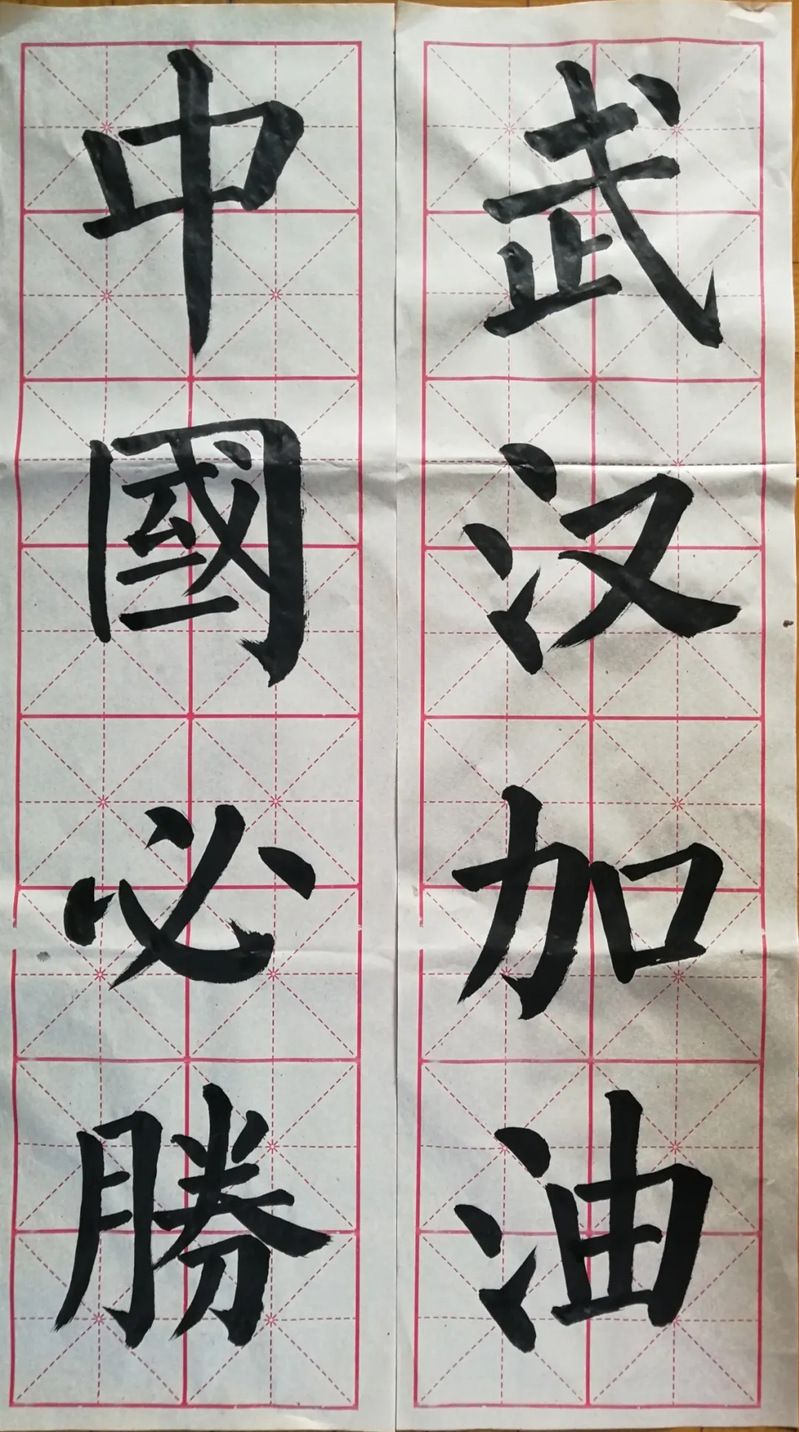 武汉加油
中國必勝